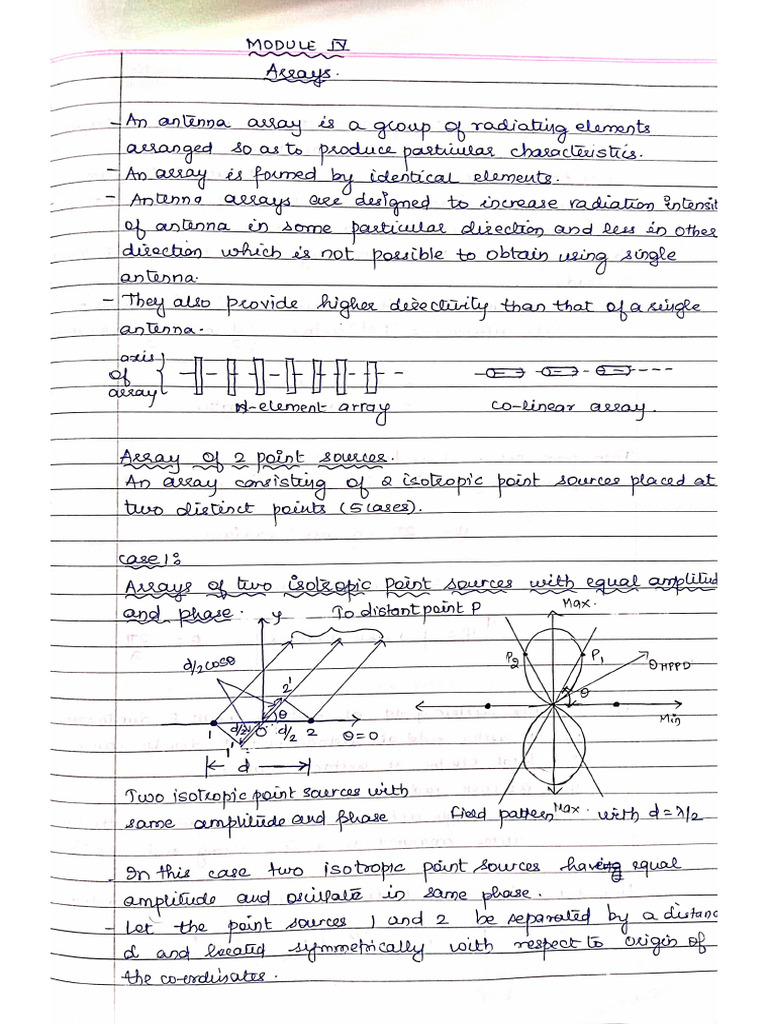 MODULE IV
Arrays.
- An antenna array is a group of radiating elements
arranged so as to produce particular characteristics.
- An array is formed by identical elements.
- Antenna arrays are designed to increase radiation intensit
of antenna in some particular direction and less in other
direction which is not possible to obtain using single
antenna.
- They also provide higher directivity than that of a single
antenna.
axis
of
array
N-element array
co-linear array.
Array of 2 point sources.
An array consisting of 2 isotropic point sources placed at
two distinct points (5 cases).
case 1:
Arrays of two isotropic point sources with equal amplitud
and phase.
y
To distant point P
d/2 cosθ
2'
θ
1
d/2
0
d/2
2
θ=0
1'
d
Max.
P2
P1
θHPPD
θ
Min
Two isotropic point sources with
same amplitude and phase
Field pattern Max. with d=λ/2
- In this case two isotropic point sources having equal
amplitude and oscillate in same phase.
- Let the point sources 1 and 2 be separated by a distanc
d and located symmetrically with respect to origin of
the co-ordinates.